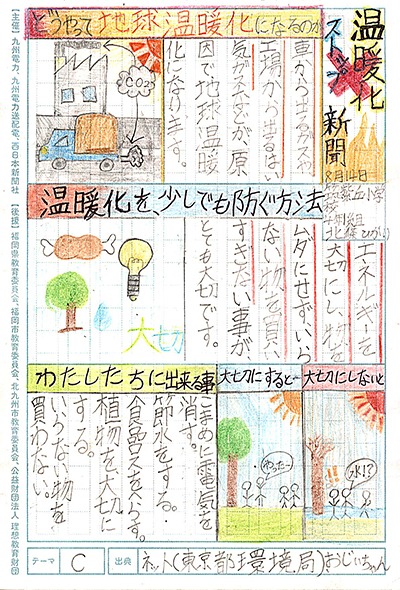 温暖化
ストップ
新聞
8月14日
どうやって地球温暖化になるのか
車から出るガスや
工場から出るはい
気ガスなどが、原
因で地球温暖
化になります。
CO2
温暖化を、少しでも防ぐ方法
エネルギーを
大切にし、物を
ムダにせず、いら
ない物を買い
すぎない事が
とても大切です。
大切
わたしたちに出来る事
こまめに電気を
消す。
節水をする。
食品ロスをへらす。
植物を大切に
する。
いらない物を
買わない。
大切にすると…
大切にしないと
テーマ C 出典 ネット(東京都環境局)おじいちゃん
【主催】九州電力、九州電力送配電、西日本新聞社 【後援】福岡県教育委員会、福岡市教育委員会、北九州市教育委員会、公益財団法人 理想教育財団